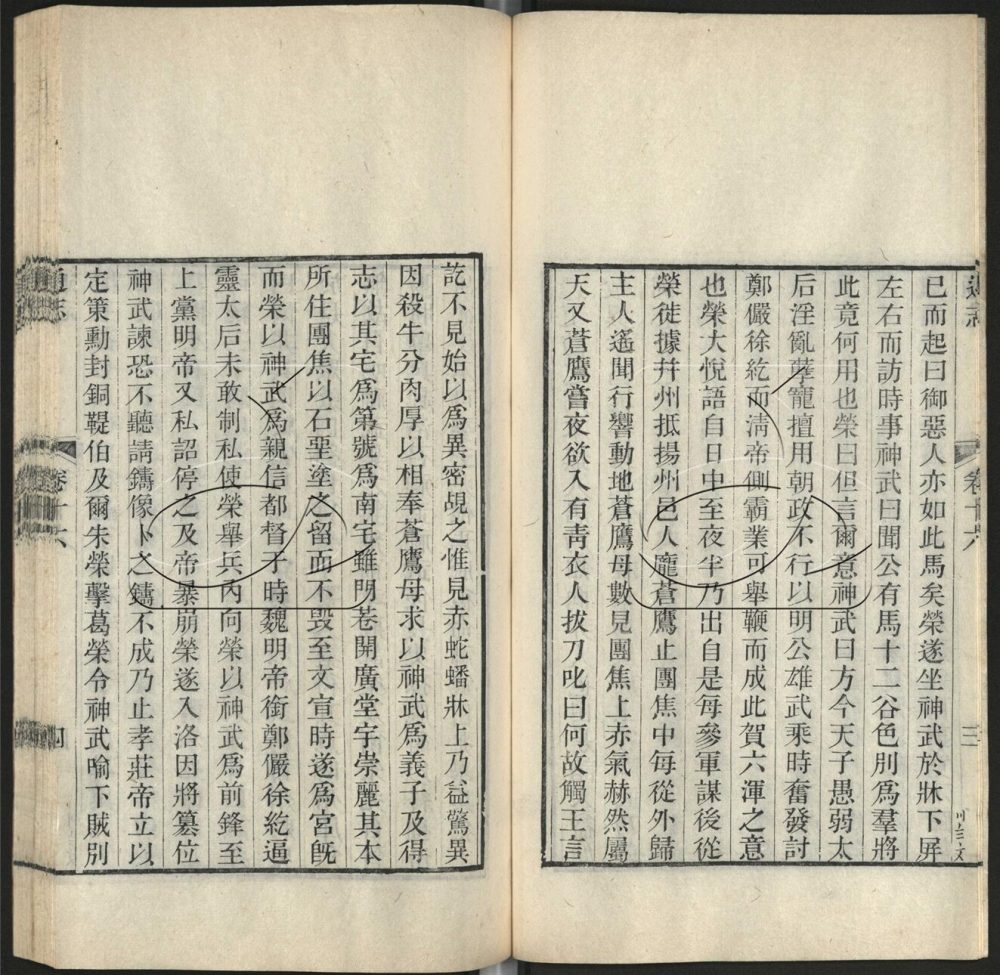 已而起曰御惡人亦如此馬矣榮遂坐神武於牀下屏
左右而訪時事神武曰聞公有馬十二谷色別爲羣將
此竟何用也榮曰但言爾意神武曰方今天子愚弱太
后淫亂孽寵擅用朝政不行以明公雄武乘時奮發討
鄭儼徐紇而淸帝側霸業可舉鞭而成此賀六渾之意
也榮大悅語自日中至夜半乃出自是每參軍謀後從
榮徙據幷州抵揚州邑人龐蒼鷹止團焦中每從外歸
主人遙聞行響動地蒼鷹母數見團焦上赤氣赫然屬
天又蒼鷹嘗夜欲入有靑衣人拔刀叱曰何故觸王言
訖不見始以爲異密覘之惟見赤蛇蟠牀上乃益驚異
因殺牛分肉厚以相奉蒼鷹母求以神武爲義子及得
志以其宅爲第號爲南宅雖門巷開廣堂宇崇麗其本
所住團焦以石堊塗之留而不毀至文宣時遂爲宮旣
而榮以神武爲親信都督于時魏明帝銜鄭儼徐紇逼
靈太后未敢制私使榮舉兵內向榮以神武爲前鋒至
上黨明帝又私詔停之及帝暴崩榮遂入洛因將篡位
神武諫恐不聽請鑄像卜之鑄不成乃止孝莊帝立以
定策勳封銅鞮伯及爾朱榮擊葛榮令神武喻下賊別
通志
卷十六